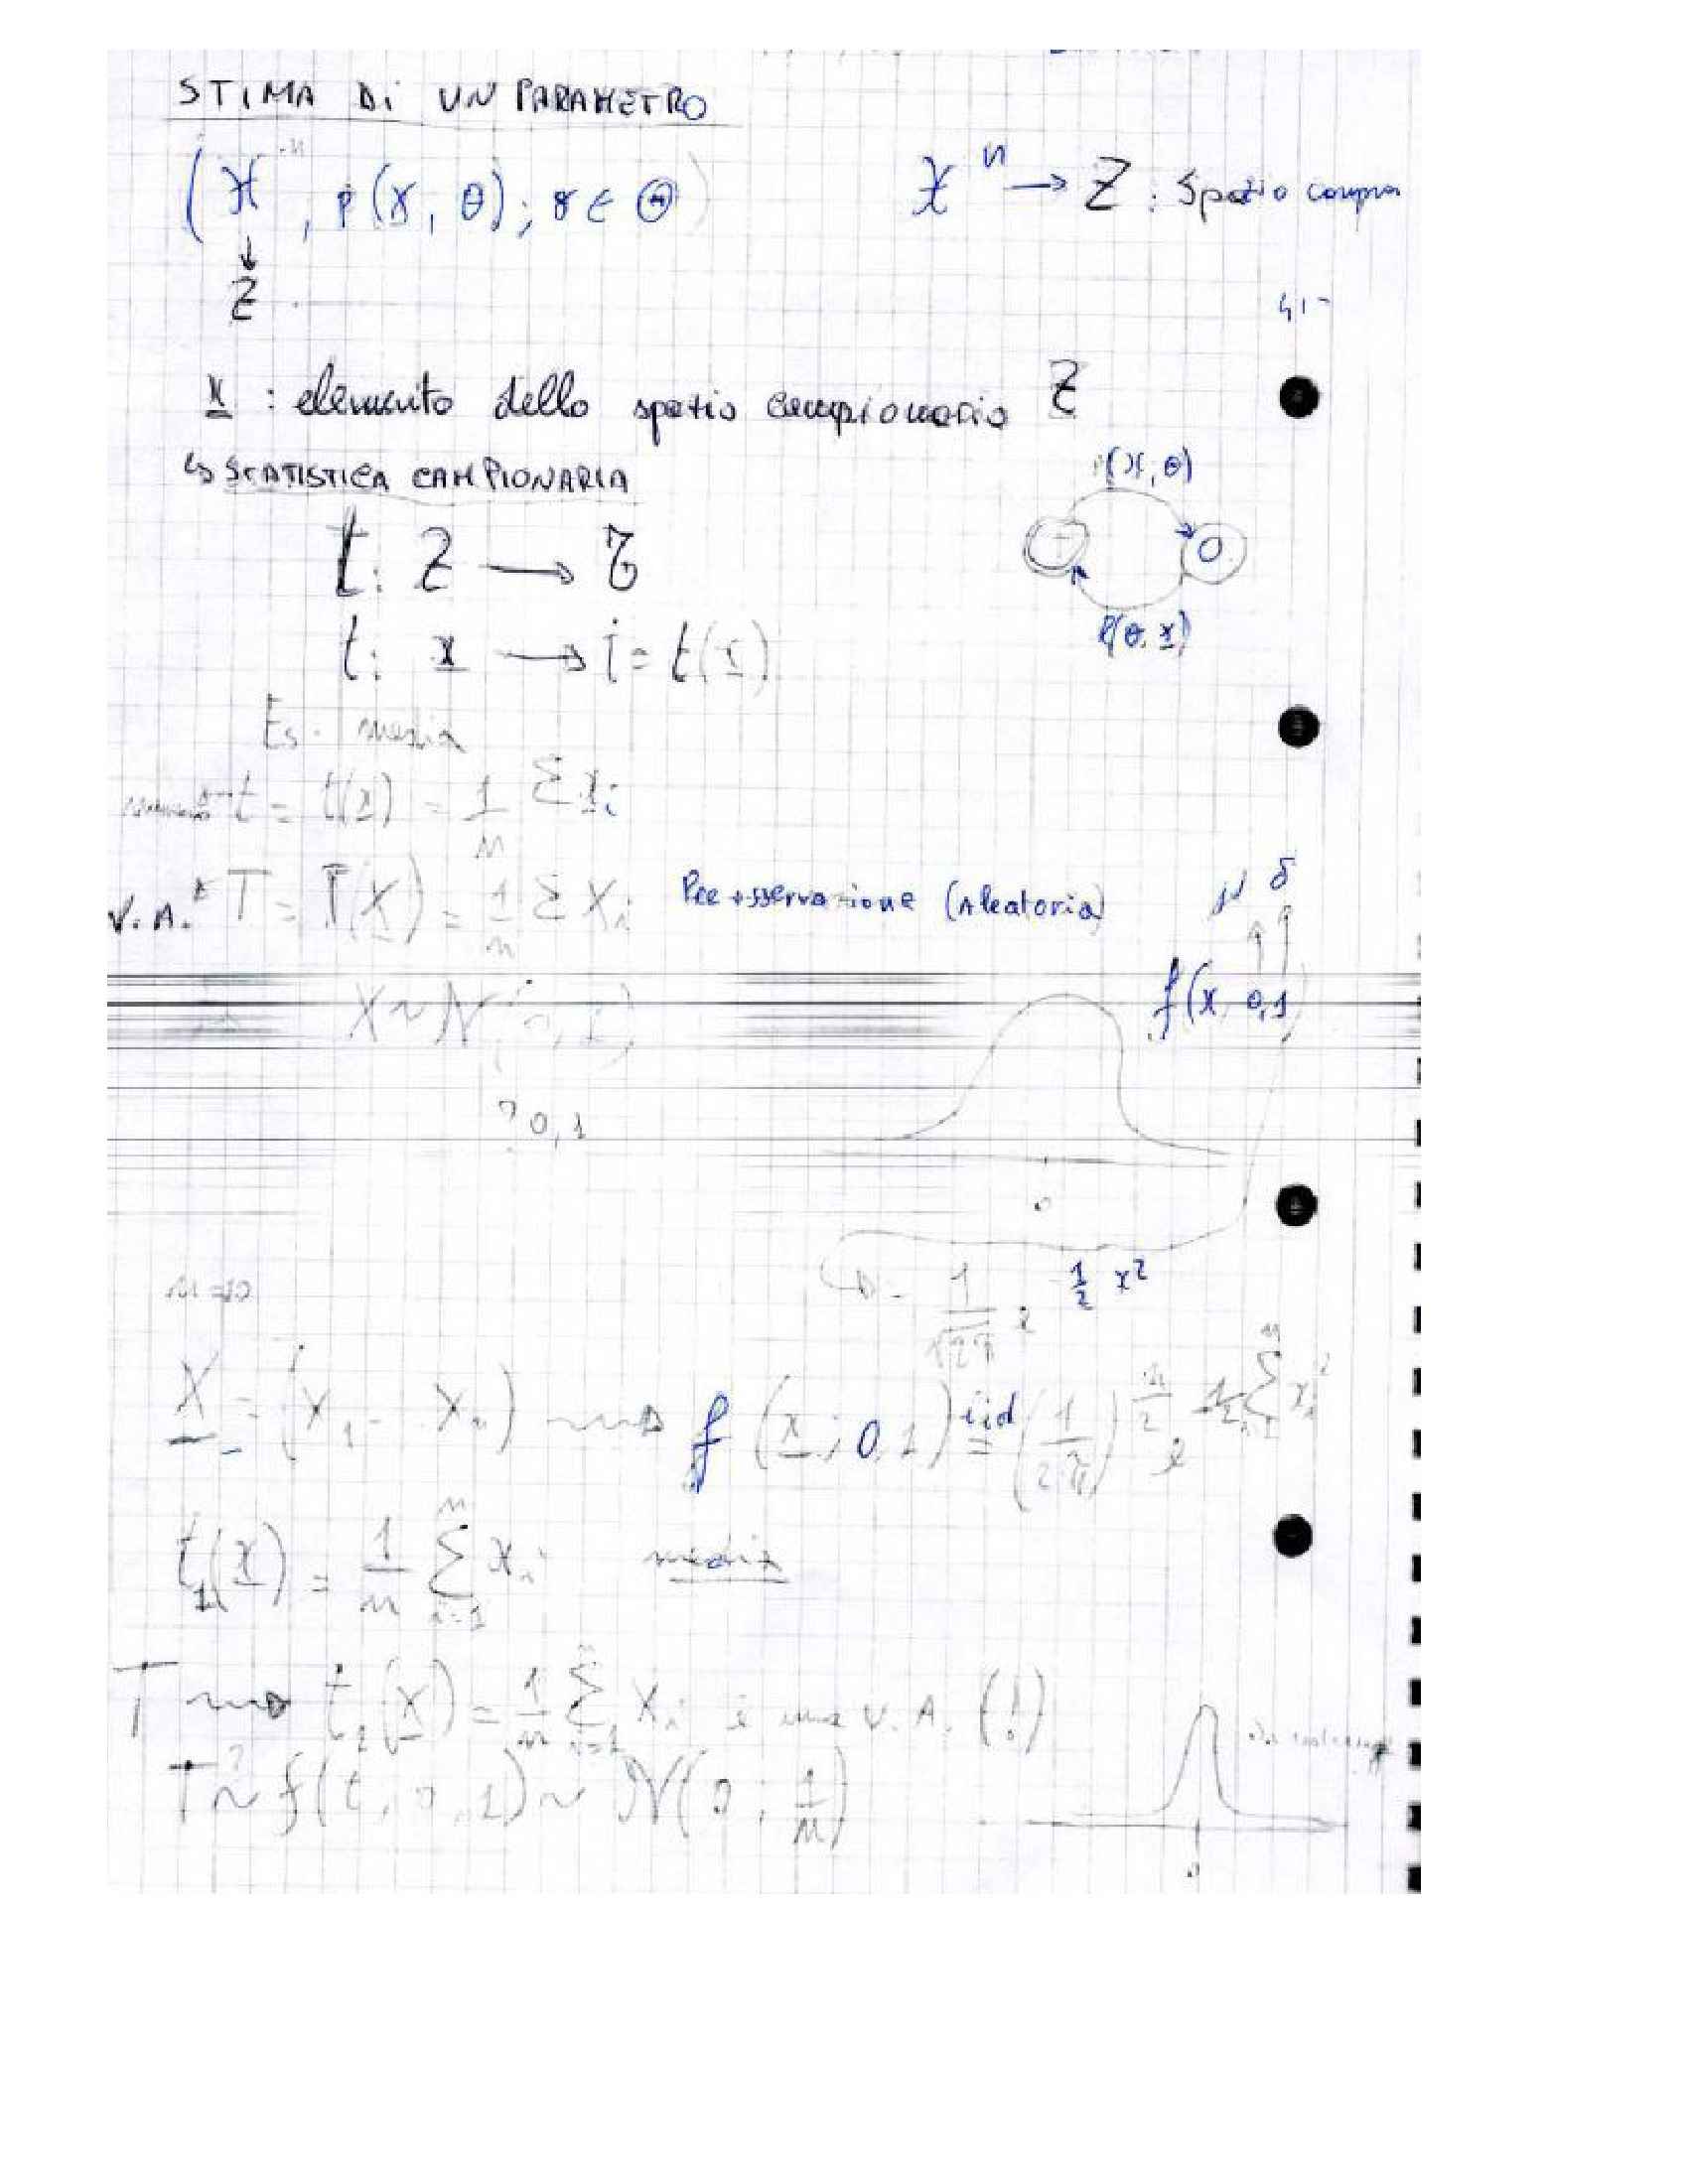 STIMA Di UN PARAMETRO
(X^n, p(x, θ); θ ∈ Θ)
X^n → Z : Spazio
↓
Z
x : elemento dello spazio campionario Z
↳ STATISTICA CAMPIONARIA
(X; θ)
t: Z → T
t: x → t = t(x)
(θ, x)
Es. media
t = t(x) = 1/n Σ xi
V.A. T = T(X) = 1/n Σ Xi Pre osservazione (Aleatoria) μ δ
f(x, 0,1
X ~ N(0, 1)
? 0,1
0
n = 10
1/√2π e 1/2 x²
X = (X1 - Xn) f (x; 0,1) iid = (1/2π)^n/2 e^-1/2 Σ^n i=1 xi²
t1(x) = 1/n Σ^n i=1 xi media
T t2(X) = 1/n Σ^n i=1 Xi è una V.A. (!)
T ~? f(t, 0,1) ~ N(0; 1/n)
0